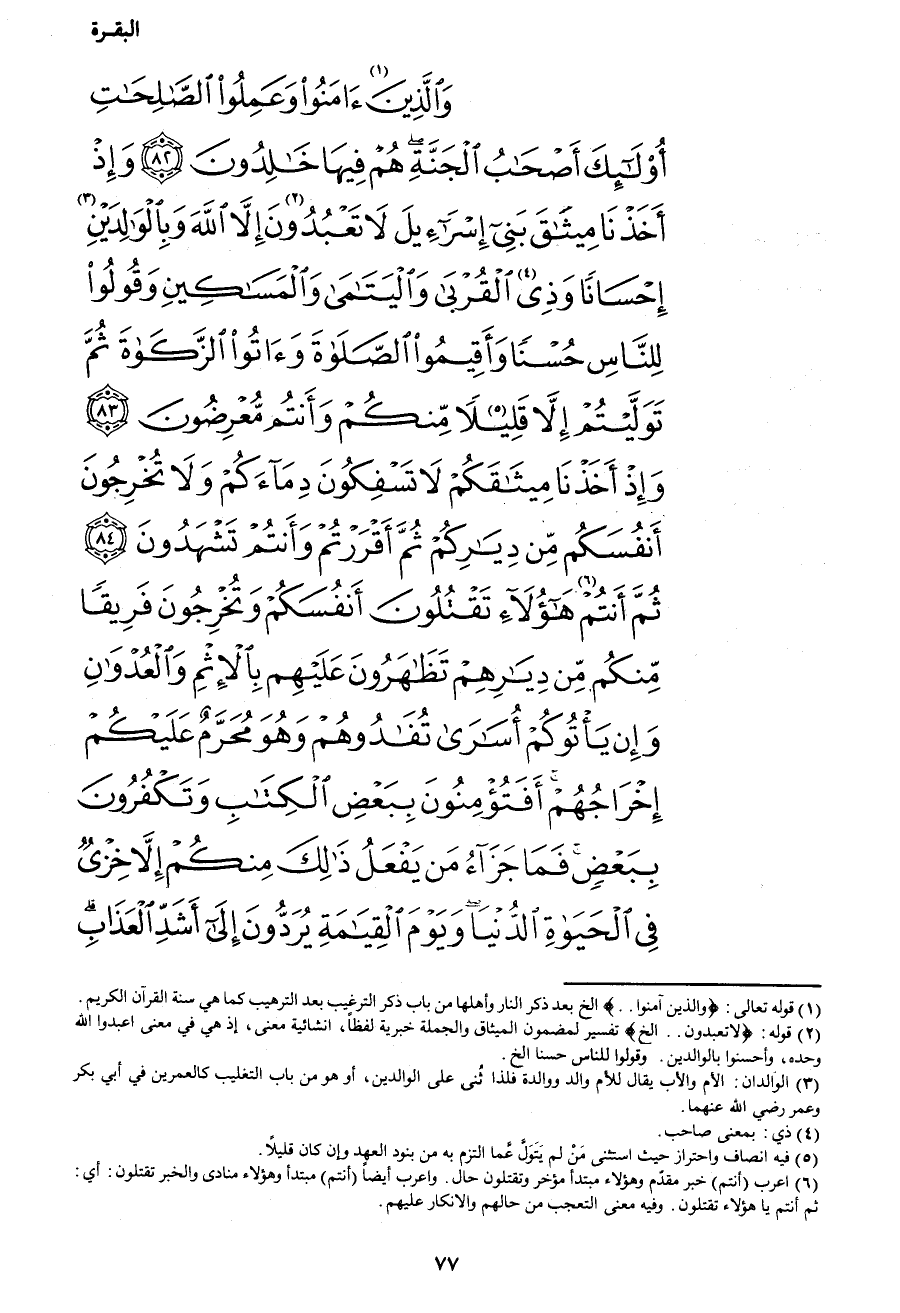 البقـرة
وَٱلَّذِينَ (١) ءَامَنُوا۟ وَعَمِلُوا۟ ٱلصَّـٰلِحَـٰتِ
أُو۟لَـٰٓئِكَ أَصْحَـٰبُ ٱلْجَنَّةِ ۖ هُمْ فِيهَا خَـٰلِدُونَ ٨٢ وَإِذْ
أَخَذْنَا مِيثَـٰقَ بَنِىٓ إِسْرَٰٓءِيلَ لَا تَعْبُدُونَ (٢) إِلَّا ٱللَّهَ وَبِٱلْوَٰلِدَيْنِ (٣)
إِحْسَانًا وَذِى (٤) ٱلْقُرْبَىٰ وَٱلْيَتَـٰمَىٰ وَٱلْمَسَـٰكِينِ وَقُولُوا۟
لِلنَّاسِ حُسْنًا وَأَقِيمُوا۟ ٱلصَّلَوٰةَ وَءَاتُوا۟ ٱلزَّكَوٰةَ ثُمَّ
تَوَلَّيْتُمْ إِلَّا قَلِيلًا (٥) مِّنكُمْ وَأَنتُم مُّعْرِضُونَ ٨٣
وَإِذْ أَخَذْنَا مِيثَـٰقَكُمْ لَا تَسْفِكُونَ دِمَآءَكُمْ وَلَا تُخْرِجُونَ
أَنفُسَكُم مِّن دِيَـٰرِكُمْ ثُمَّ أَقْرَرْتُمْ وَأَنتُمْ تَشْهَدُونَ ٨٤
ثُمَّ أَنتُمْ (٦) هَـٰٓؤُلَآءِ تَقْتُلُونَ أَنفُسَكُمْ وَتُخْرِجُونَ فَرِيقًا
مِّنكُم مِّن دِيَـٰرِهِمْ تَظَـٰهَرُونَ عَلَيْهِم بِٱلْإِثْمِ وَٱلْعُدْوَٰنِ
وَإِن يَأْتُوكُمْ أُسَـٰرَىٰ تُفَـٰدُوهُمْ وَهُوَ مُحَرَّمٌ عَلَيْكُمْ
إِخْرَاجُهُمْ ۚ أَفَتُؤْمِنُونَ بِبَعْضِ ٱلْكِتَـٰبِ وَتَكْفُرُونَ
بِبَعْضٍ ۚ فَمَا جَزَآءُ مَن يَفْعَلُ ذَٰلِكَ مِنكُمْ إِلَّا خِزْىٌ
فِى ٱلْحَيَوٰةِ ٱلدُّنْيَا ۖ وَيَوْمَ ٱلْقِيَـٰمَةِ يُرَدُّونَ إِلَىٰٓ أَشَدِّ ٱلْعَذَابِ ۗ
(١) قوله تعالى: ﴿والذين آمنوا . .﴾ الخ بعد ذكر النار وأهلها من باب ذكر الترغيب بعد الترهيب كما هي سنة القرآن الكريم.
(٢) قوله: ﴿لا تعبدون . . الخ﴾ تفسير لمضمون الميثاق والجملة خبرية لفظاً، انشائية معنى، إذ هي في معنى اعبدوا الله
وحده، وأحسنوا بالوالدين. وقولوا للناس حسنا الخ.
(٣) الوالدان: الأم والأب يقال للأم والد ووالدة فلذا ثُنى على الوالدين، أو هو من باب التغليب كالعمرين في أبي بكر
وعمر رضي الله عنهما.
(٤) ذي: بمعنى صاحب.
(٥) فيه انصاف واحتراز حيث استثنى مَنْ لم يَتَوَلَّ عَّما التزم به من بنود العهد وإن كان قليلاً.
(٦) اعرب (أنتم) خبر مقدّم وهؤلاء مبتدأ مؤخر وتقتلون حال. واعرب أيضاً (أنتم) مبتدأ وهؤلاء منادى والخبر تقتلون: أي:
ثم أنتم يا هؤلاء تقتلون. وفيه معنى التعجب من حالهم والانكار عليهم.
٧٧